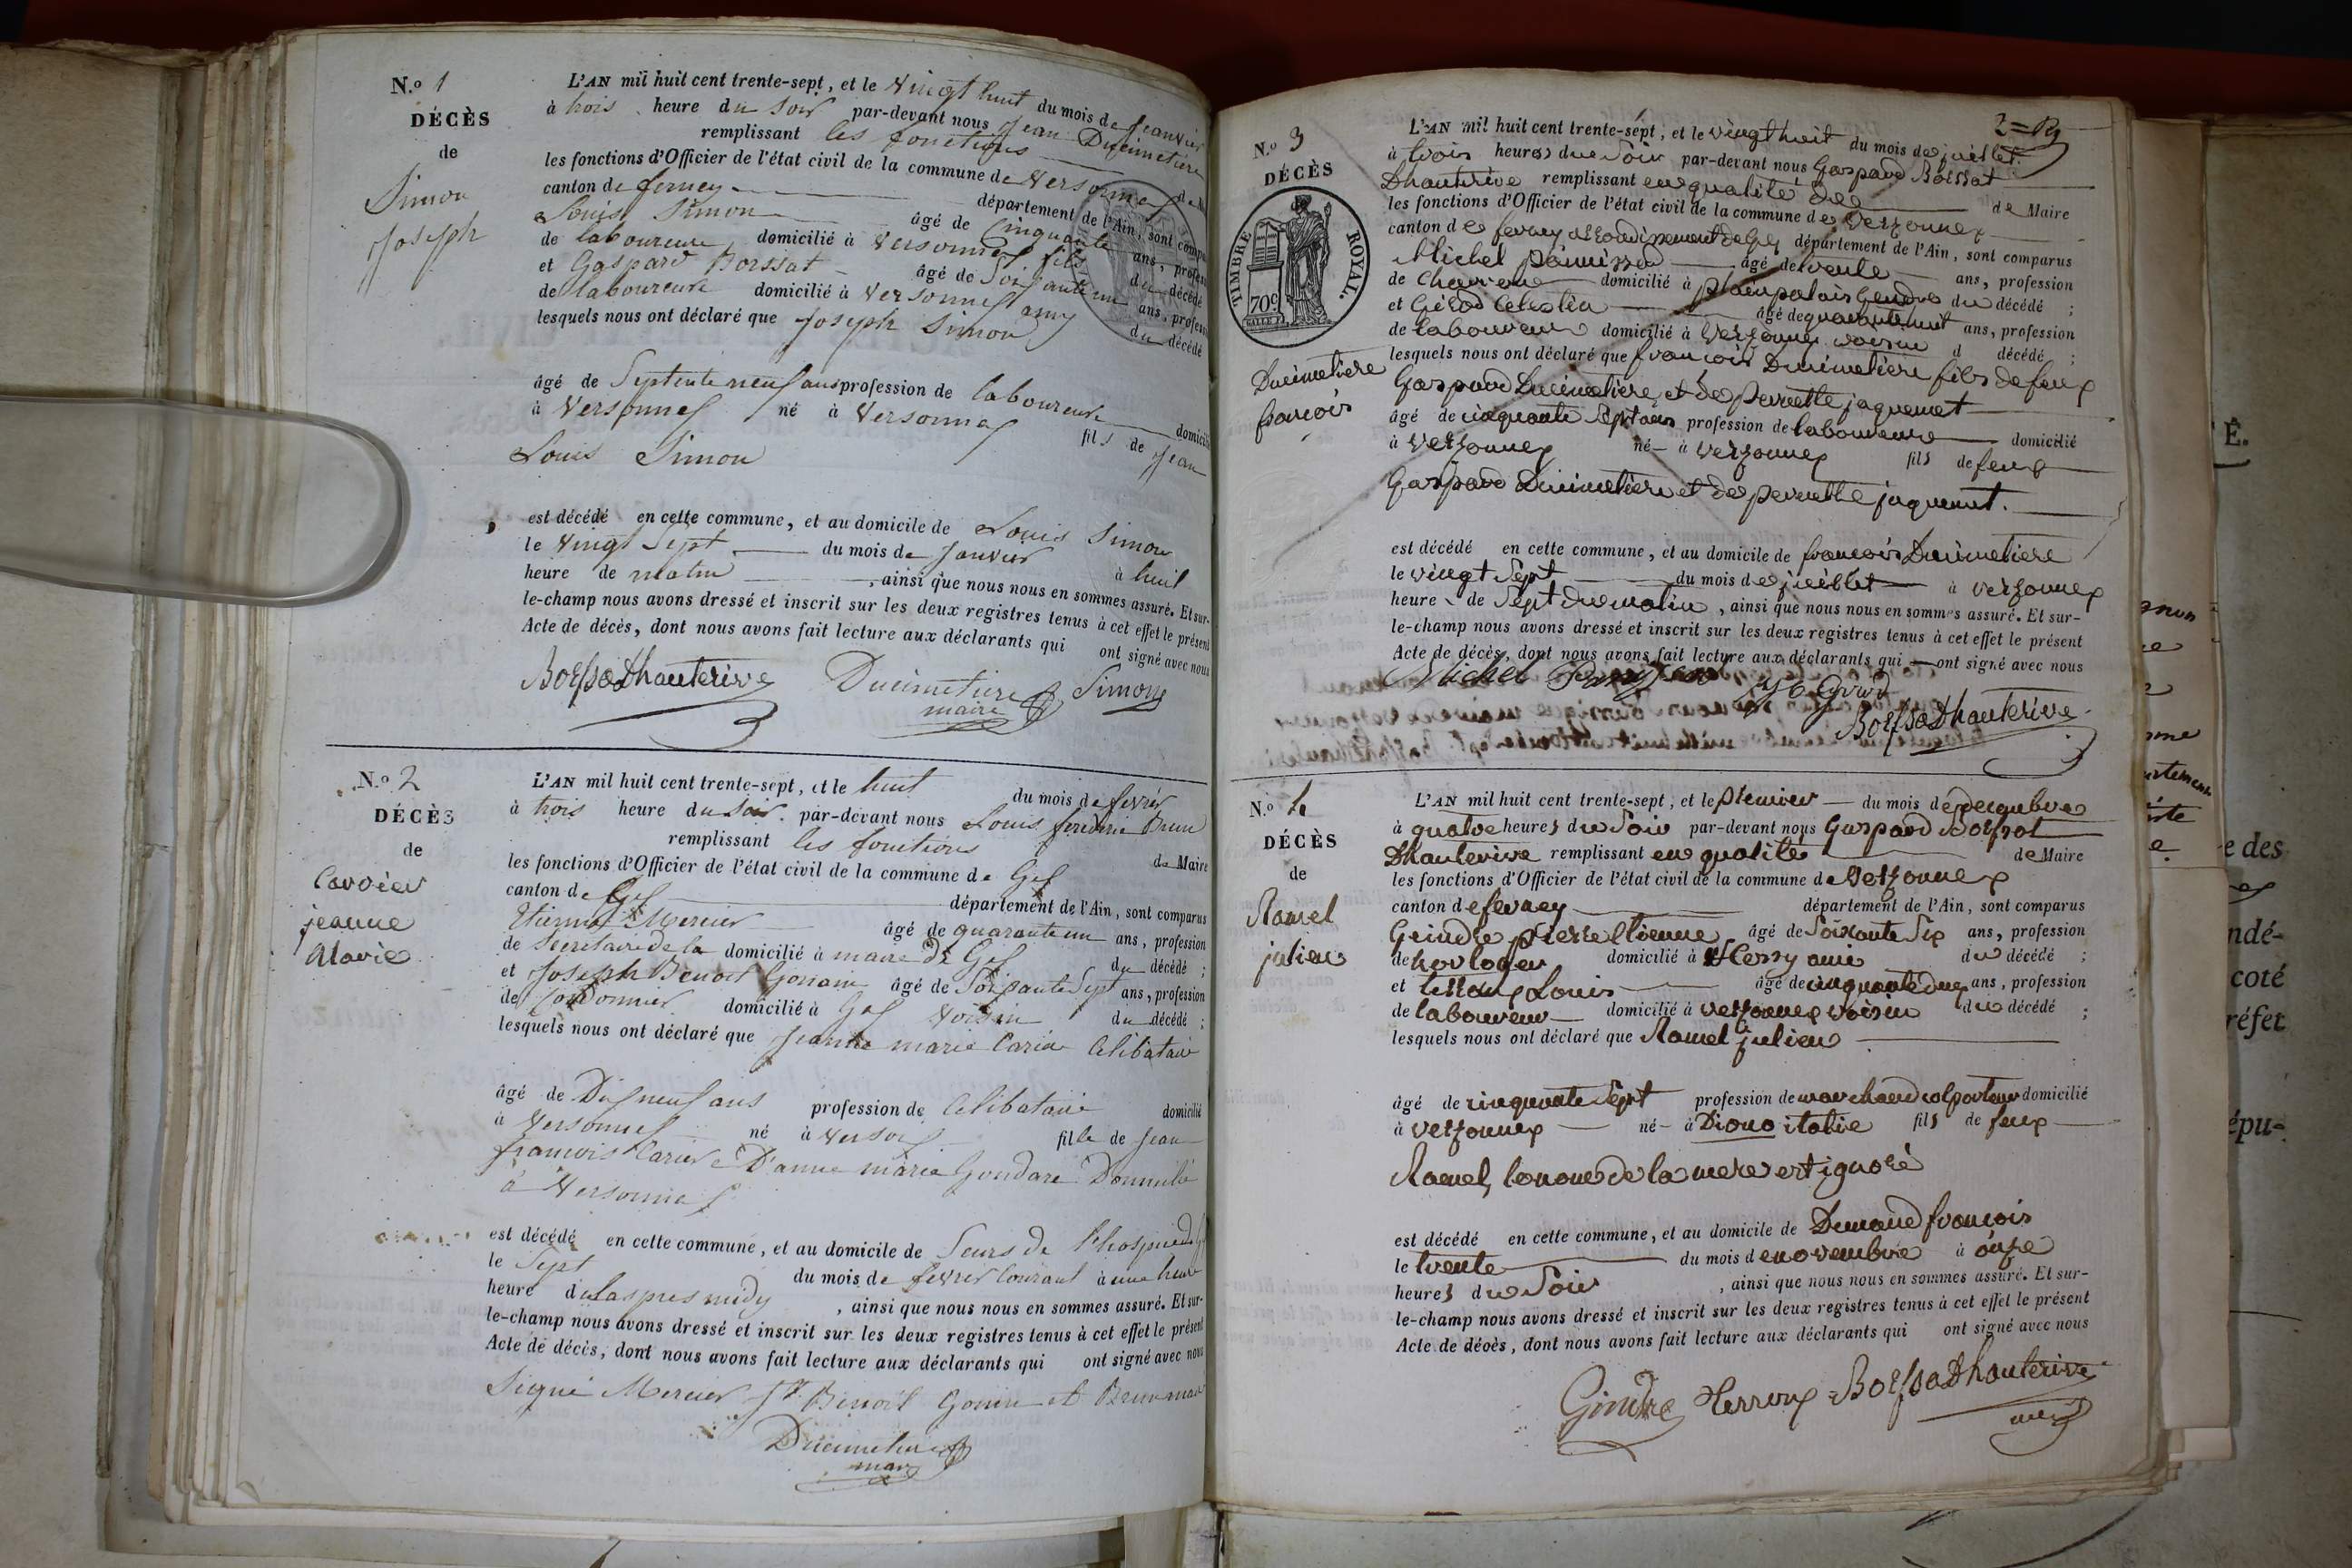 N.º 1
DÉCÈS
de
Simon
Joseph
L'AN mil huit cent trente-sept, et le vingt huit du mois de Jeanvier
à trois heure du soir par-devant nous Jean Ducimetiere
remplissant les fonctions de Maire
les fonctions d'Officier de l'état civil de la commune de Versonnex
canton de ferney département de l'Ain, sont comparus
Louis Simon âgé de Cinquante ans, profession
de laboureure domicilié à Versonnex fils du décédé
et Gaspard Boissat âgé de Soixante un ans, profession
de laboureure domicilié à Versonnex amy du décédé
lesquels nous ont déclaré que Joseph Simon
âgé de Septente neuf ans profession de laboureure domicilié
à Versonnex né à Versonnex fils de Jean
Louis Simon
est décédé en cette commune, et au domicile de Louis Simon
le vingt Sept du mois de Janvier à huit
heure de matin, ainsi que nous nous en sommes assuré. Et sur-
le-champ nous avons dressé et inscrit sur les deux registres tenus à cet effet le présent
Acte de décès, dont nous avons fait lecture aux déclarants qui ont signé avec nous
BoissaDhauterive Ducimetiere Simon
maire
N.º 2
DÉCÈS
de
Carrier
jeanne
Marie
L'AN mil huit cent trente-sept, et le huit du mois de fevrier
à trois heure du soir par-devant nous Louis frederic Brun
remplissant les fonctions de Maire
les fonctions d'Officier de l'état civil de la commune de Gex
canton de Gex département de l'Ain, sont comparus
Etienne Mercier âgé de quarante un ans, profession
de Secretaire de la domicilié à maire de Gex du décédé ;
et Joseph Benoit Gonin âgé de Soixante Sept ans, profession
de Cordonnier domicilié à Gex Voisin du décédé ;
lesquels nous ont déclaré que Jeanne marie Carier Celibataire
âgé de Dix neuf ans profession de Celibataire domicilié
à Versonnex né à Versoix fille de Jean
francois Carier e D'anne marie Goudare Domicilié
à Versonnex
est décédé en cette commune, et au domicile de Seurs de l'hospice de Gex
le Sept du mois de fevrier Courant à une heure
heure de laspres midy, ainsi que nous nous en sommes assuré. Et sur-
le-champ nous avons dressé et inscrit sur les deux registres tenus à cet effet le présent
Acte de décès, dont nous avons fait lecture aux déclarants qui ont signé avec nous
Signé Mercier Jh Benoit Gonin et Brun maire
Ducimetiere
maire
N.º 3
DÉCÈS
TIMBRE ROYAL.
70c
Ducimetiere
françois
L'AN mil huit cent trente-sept, et le vingt huit du mois de juillet
à trois heures du Soir par-devant nous Gaspard Boissat
Dhauterive remplissant en qualité de de Maire
les fonctions d'Officier de l'état civil de la commune de Versonnex
canton de ferney arrondissement de Gex département de l'Ain, sont comparus
Michel âgé de trente ans, profession
de Charron domicilié à plainpalais Gendre du décédé ;
et Girod Celestin âgé de quarante huit ans, profession
de laboureur domicilié à Versonnex voisin d décédé ;
lesquels nous ont déclaré que françois Ducimetiere fils de feux
Gaspard Ducimetiere et de pernette jaquemet
âgé de cinquante Sept ans profession de laboureure domicilié
à Versonnex né à Versonnex fils de feux
Gaspard Ducimetiere et de pernette jaquemet.
est décédé en cette commune, et au domicile de françois Ducimetiere
le vingt Sept du mois de juillet à Versonnex
heure de Sept du matin, ainsi que nous nous en sommes assuré. Et sur-
le-champ nous avons dressé et inscrit sur les deux registres tenus à cet effet le présent
Acte de décès, dont nous avons fait lecture aux déclarants qui ont signé avec nous
Michel
BoissaDhauterive
N.º 4
DÉCÈS
de
Ramel
julien
L'AN mil huit cent trente-sept, et le premier du mois de decembre
à quatre heures du Soir par-devant nous Gaspard Boissat
Dhauterive remplissant en qualité de Maire
les fonctions d'Officier de l'état civil de la commune de Versonnex
canton de ferney département de l'Ain, sont comparus
Geindre pierre Etienne âgé de Soixante Six ans, profession
de horloger domicilié à Hessy ami du décédé ;
et Louis âgé de cinquante deux ans, profession
de laboureur domicilié à Versonnex voisin du décédé ;
lesquels nous ont déclaré que Ramel julien
âgé de cinquante Sept profession de marchand colporteur domicilié
à Versonnex né à Diono italie fils de feux
Ramel, le nom de la mere est ignoré
est décédé en cette commune, et au domicile de Dumand françois
le trente du mois de novembre à onze
heures du Soir, ainsi que nous nous en sommes assuré. Et sur-
le-champ nous avons dressé et inscrit sur les deux registres tenus à cet effet le présent
Acte de décès, dont nous avons fait lecture aux déclarants qui ont signé avec nous
Gindre BoissaDhauterive